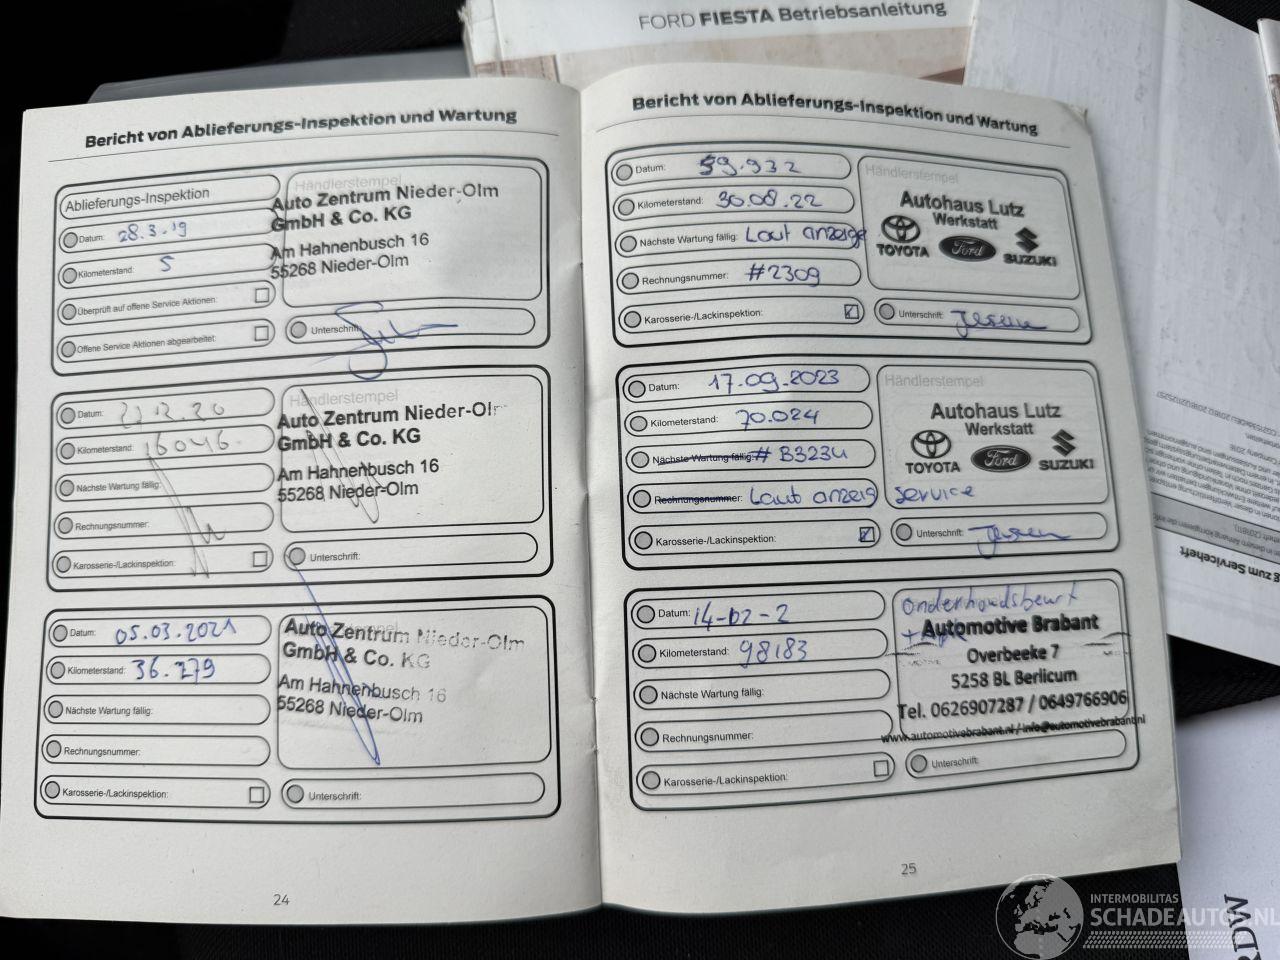 FORD FIESTA Betriebsanleitung
Bericht von Ablieferungs-Inspektion und Wartung
Ablieferungs-Inspektion
Datum: 28.3.19
Kilometerstand: 5
Überprüft auf offene Service Aktionen:
Offene Service Aktionen abgearbeitet:
Händlerstempel
Auto Zentrum Nieder-Olm
GmbH & Co. KG
Am Hahnenbusch 16
55268 Nieder-Olm
Unterschrift:
Datum: 12.20
Kilometerstand: 16046
Nächste Wartung fällig:
Rechnungsnummer:
Karosserie-/Lackinspektion:
Händlerstempel
Auto Zentrum Nieder-Olm
GmbH & Co. KG
Am Hahnenbusch 16
55268 Nieder-Olm
Unterschrift:
Datum: 05.03.2021
Kilometerstand: 36.279
Nächste Wartung fällig:
Rechnungsnummer:
Karosserie-/Lackinspektion:
Auto Zentrum Nieder-Olm
GmbH & Co. KG
Am Hahnenbusch 16
55268 Nieder-Olm
Unterschrift:
24
Bericht von Ablieferungs-Inspektion und Wartung
Datum: 59.932
Kilometerstand: 30.08.22
Nächste Wartung fällig: Laut anzeige
Rechnungsnummer: #2309
Karosserie-/Lackinspektion:
Händlerstempel
Autohaus Lutz
Werkstatt
TOYOTA Ford SUZUKI
Unterschrift:
Datum: 17.09.2023
Kilometerstand: 70.024
Nächste Wartung fällig: # B3234
Rechnungsnummer: Laut anzeig service
Karosserie-/Lackinspektion:
Händlerstempel
Autohaus Lutz
Werkstatt
TOYOTA Ford SUZUKI
Unterschrift:
Datum: 14-02-2
Kilometerstand: 98183
Nächste Wartung fällig:
Rechnungsnummer:
Karosserie-/Lackinspektion:
onderhoudsbeurt
Automotive Brabant
Overbeeke 7
5258 BL Berlicum
Tel. 0626907287 / 0649766906
www.automotivebrabant.nl / info@automotivebrabant.nl
Unterschrift:
25
zum Serviceheft
INTERMOBILITAS
SCHADEAUTOS.NL